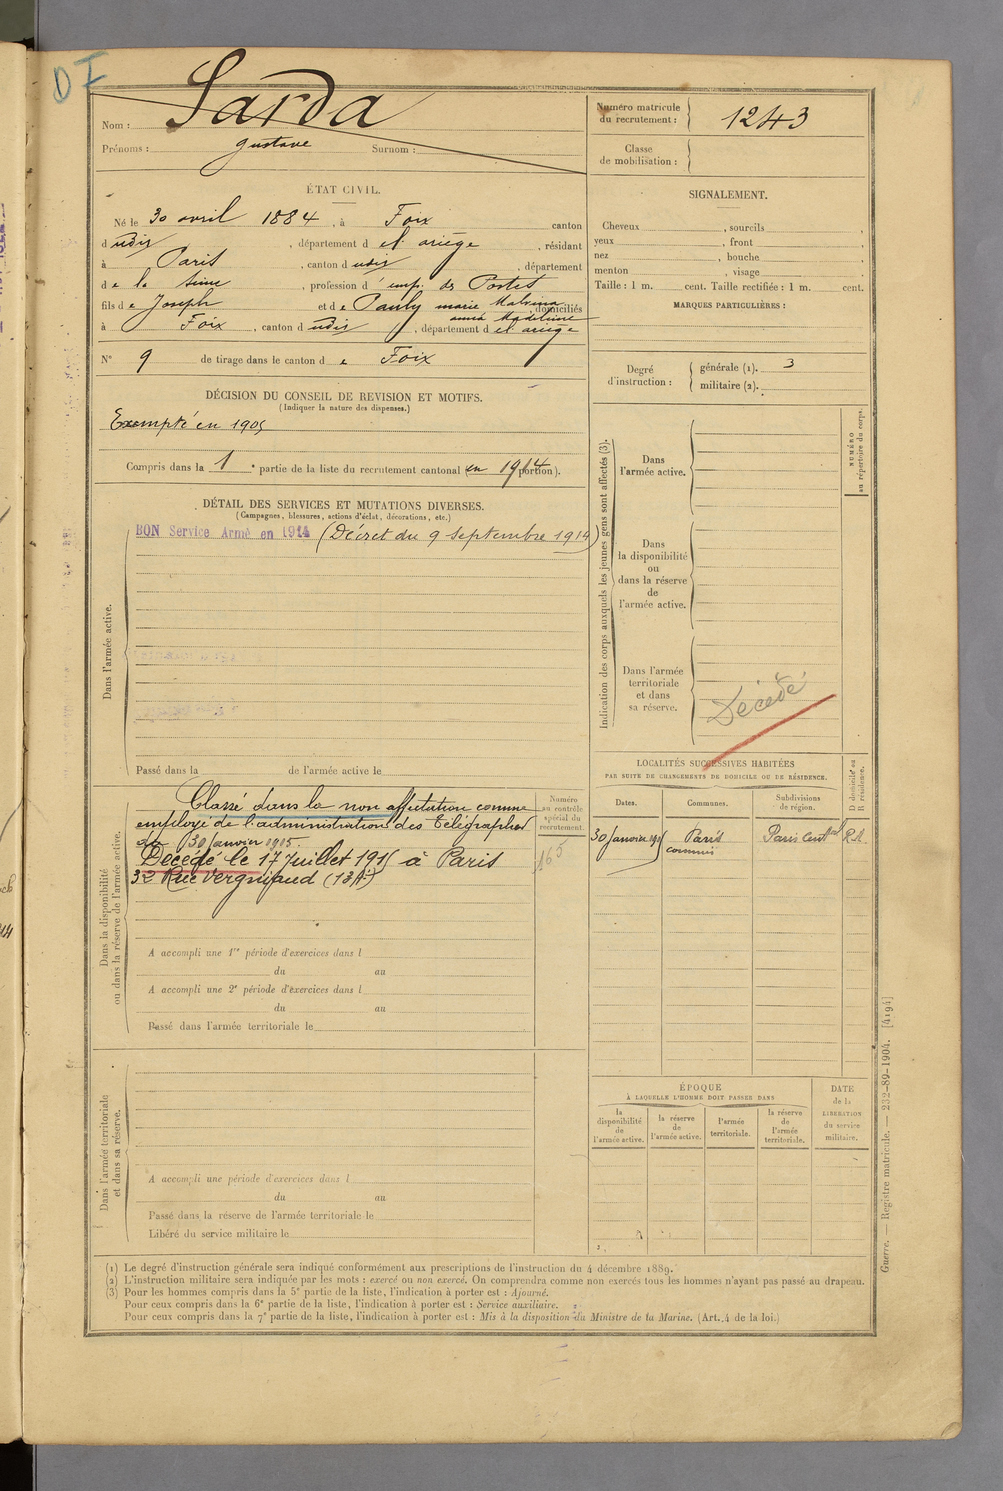 DF
Nom : Sarda
Prénoms : gustave Surnom :
Numéro matricule
du recrutement : 1243
Classe
de mobilisation :
ÉTAT CIVIL.
Né le 30 avril 1884, à Foix canton
dudis, département d el ariège, résidant
à Paris, canton dudis, département
de la Seine, profession d'emp. des Postes
fils de Joseph et de Pauly marie Malvina
anna Madeleine domiciliés
à Foix, canton dudis, département d el ariège
N° 9 de tirage dans le canton de Foix
SIGNALEMENT.
Cheveux , sourcils ,
yeux , front ,
nez , bouche ,
menton , visage
Taille : 1 m. cent. Taille rectifiée : 1 m. cent.
MARQUES PARTICULIÈRES :
Degré
d'instruction :
générale (1). 3
militaire (2).
DÉCISION DU CONSEIL DE REVISION ET MOTIFS.
(Indiquer la nature des dispenses.)
Exempté en 1905
Compris dans la 1e partie de la liste du recrutement cantonal (en 1914 portion).
DÉTAIL DES SERVICES ET MUTATIONS DIVERSES.
(Campagnes, blessures, actions d'éclat, décorations, etc.)
Dans l'armée active.
BON Service Armé en 1914 (Décret du 9 septembre 1914)
Passé dans la de l'armée active le
Indication des corps auxquels les jeunes gens sont affectés (3).
NUMÉRO
au répertoire du corps.
Dans
l'armée active.
Dans
la disponibilité
ou
dans la réserve
de
l'armée active.
Dans l'armée
territoriale
et dans
sa réserve.
Décédé
Dans la disponibilité
ou dans la réserve de l'armée active.
Classé dans la non affectation comme
employé de l'administration des Télégraphes
du 30 Janvier 1915.
Décédé le 17 Juillet 1915 à Paris
32 Rue Vergniaud (13e Art)
Numéro
au contrôle
spécial du
recrutement.
165
A accompli une 1re période d'exercices dans l
du au
A accompli une 2e période d'exercices dans l
du au
Passé dans l'armée territoriale le
LOCALITÉS SUCCESSIVES HABITÉES
PAR SUITE DE CHANGEMENTS DE DOMICILE OU DE RÉSIDENCE.
Dates. Communes. Subdivisions
de région. D domicile ou
R résidence.
30 Janvier 1915 Paris Paris Central R.A
commis
Dans l'armée territoriale
et dans sa réserve.
A accompli une période d'exercices dans l
du au
Passé dans la réserve de l'armée territoriale le
Libéré du service militaire le
ÉPOQUE
À LAQUELLE L'HOMME DOIT PASSER DANS
la
disponibilité
de
l'armée active.
la réserve
de
l'armée active.
l'armée
territoriale.
la réserve
de
l'armée
territoriale.
DATE
de la
LIBÉRATION
du service
militaire.
(1) Le degré d'instruction générale sera indiqué conformément aux prescriptions de l'instruction du 4 décembre 1889.
(2) L'instruction militaire sera indiquée par les mots : exercé ou non exercé. On comprendra comme non exercés tous les hommes n'ayant pas passé au drapeau.
(3) Pour les hommes compris dans la 5e partie de la liste, l'indication à porter est : Ajourné.
Pour ceux compris dans la 6e partie de la liste, l'indication à porter est : Service auxiliaire.
Pour ceux compris dans la 7e partie de la liste, l'indication à porter est : Mis à la disposition du Ministre de la Marine. (Art. 4 de la loi.)
Guerre. — Registre matricule. — 232-89-1904. [4194]